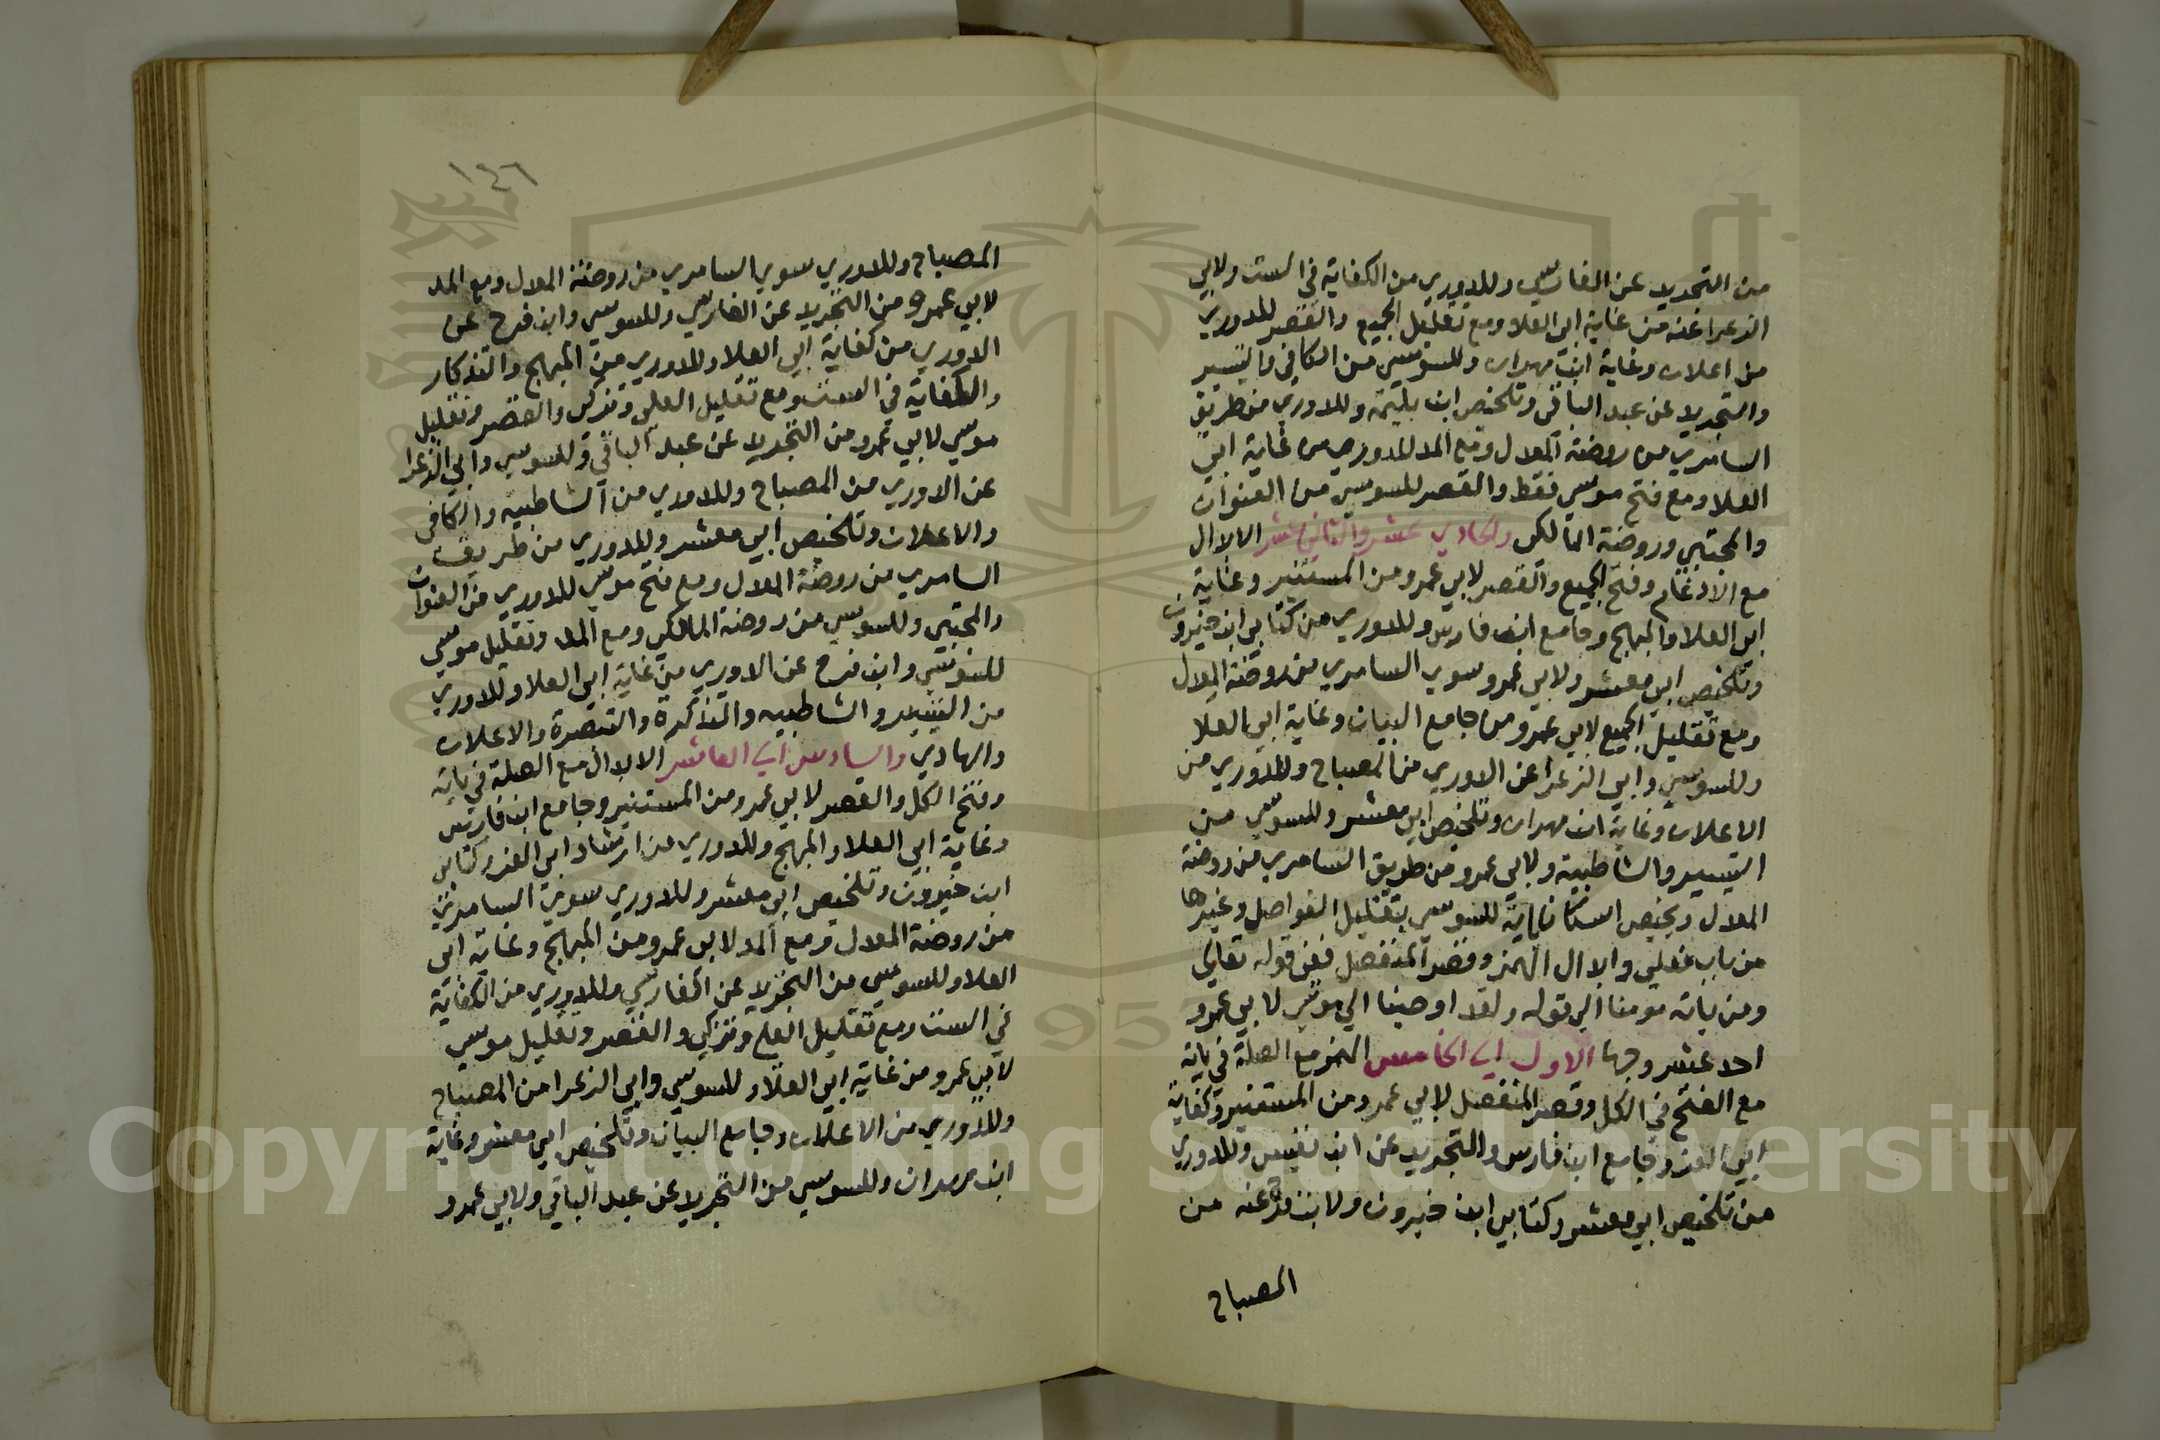 من التجريد عن الفارسي وللدوري من الكفاية في الست ولابي
الزعرا عنه من غاية ابي العلا ومع تقليل الجميع والقصر للدوري
من اعلان وغاية ابن مهران وللسوسي من الكافي والتيسير
والتجريد عن عبد الباقي وتلخيص ابن بليمة وللدوري من طريق
السامري من روضة المعدل ومع المد للدوري من غاية ابي
العلا ومع فتح موسي فقط والقصر للسوسي من العنوان
والمجتبي وروضة المالكي والحادي عشر والثاني عشر الابدال
مع الادغام وفتح الجميع والقصر لابي عمرو من المستنير وغاية
ابي العلا والمبهج وجامع ابن فارس وللدوري من كتابي ابن خيرون
وتلخيص ابي معشر ولابي عمرو سوي السامري من روضة المعدل
ومع تقليل الجميع لابي عمرو من جامع البيان وغاية ابي العلا
وللسوسي وابي الزعرا عن الدوري من المصباح وللدوري من
الاعلان وغاية ابن مهران وتلخيص ابي معشر وللسوسي من
التيسير والشاطبية ولابي عمرو من طريق السامري من روضة
المعدل ويختص اسكان ياته للسوسي بتقليل الفواصل وغيرها
من باب فعلي وابدال الهمز وقصر المنفصل ففي قوله تعالي
ومن ياته مومنا الي قوله ولقد اوحينا الي موسي لابي عمرو
احد عشر وجها الاول الي الخامس الهمز مع الصلة في ياته
مع الفتح في الكل وقصر المنفصل لابي عمرو من المستنير وكفاية
ابي العز وجامع ابن فارس والتجريد عن ابن نفيس وللدوري
من تلخيص ابي معشر وكتابي ابن خيرون ولابن فرح عنه من
المصباح
١٤٦
المصباح وللدوري سوي السامري من روضة المعدل ومع المد
لابي عمرو من التجريد عن الفارسي وللسوسي وابن فرح عن
الدوري من كفاية ابي العلا وللدوري من المبهج والتذكار
والكفاية في الست ومع تقليل العلي وتزكي والقصر وتقليل
موسي لابي عمرو من التجريد عن عبد الباقي وللسوسي وابي الزعرا
عن الدوري من المصباح وللدوري من الشاطبية والكافي
والاعلان وتلخيص ابي معشر وللدوري من طريق
السامري من روضة المعدل ومع فتح موسي للدوري من العنوان
والمجتبي وللسوسي من روضة المالكي ومع المد وتقليل موسي
للسوسي وابن فرح عن الدوري من غاية ابي العلا وللدوري
من التيسير والشاطبيه والتذكرة والتبصرة والاعلان
والهادي والسادس الي العاشر الابدال مع الصلة في ياته
وفتح الكل والقصر لابي عمرو من المستنير وجامع ابن فارس
وغاية ابي العلا والمبهج وللدوري من ارشاد ابي العز وكتابي
ابن خيرون وتلخيص ابي معشر وللدوري سوي السامري
من روضة المعدل ومع المد لابي عمرو من المبهج وغاية ابي
العلا وللسوسي من التجريد عن الفارسي وللدوري من الكفاية
في الست ومع تقليل العلي وتزكي والقصر وتقليل موسي
لابي عمرو من غاية ابي العلا وللسوسي وابي الزعرا من المصباح
وللدوري من الاعلان وجامع البيان وتلخيص ابي معشر وغاية
ابن مهران وللسوسي من التجريد عن عبد الباقي ولابي عمرو
Copyright © King Saud University